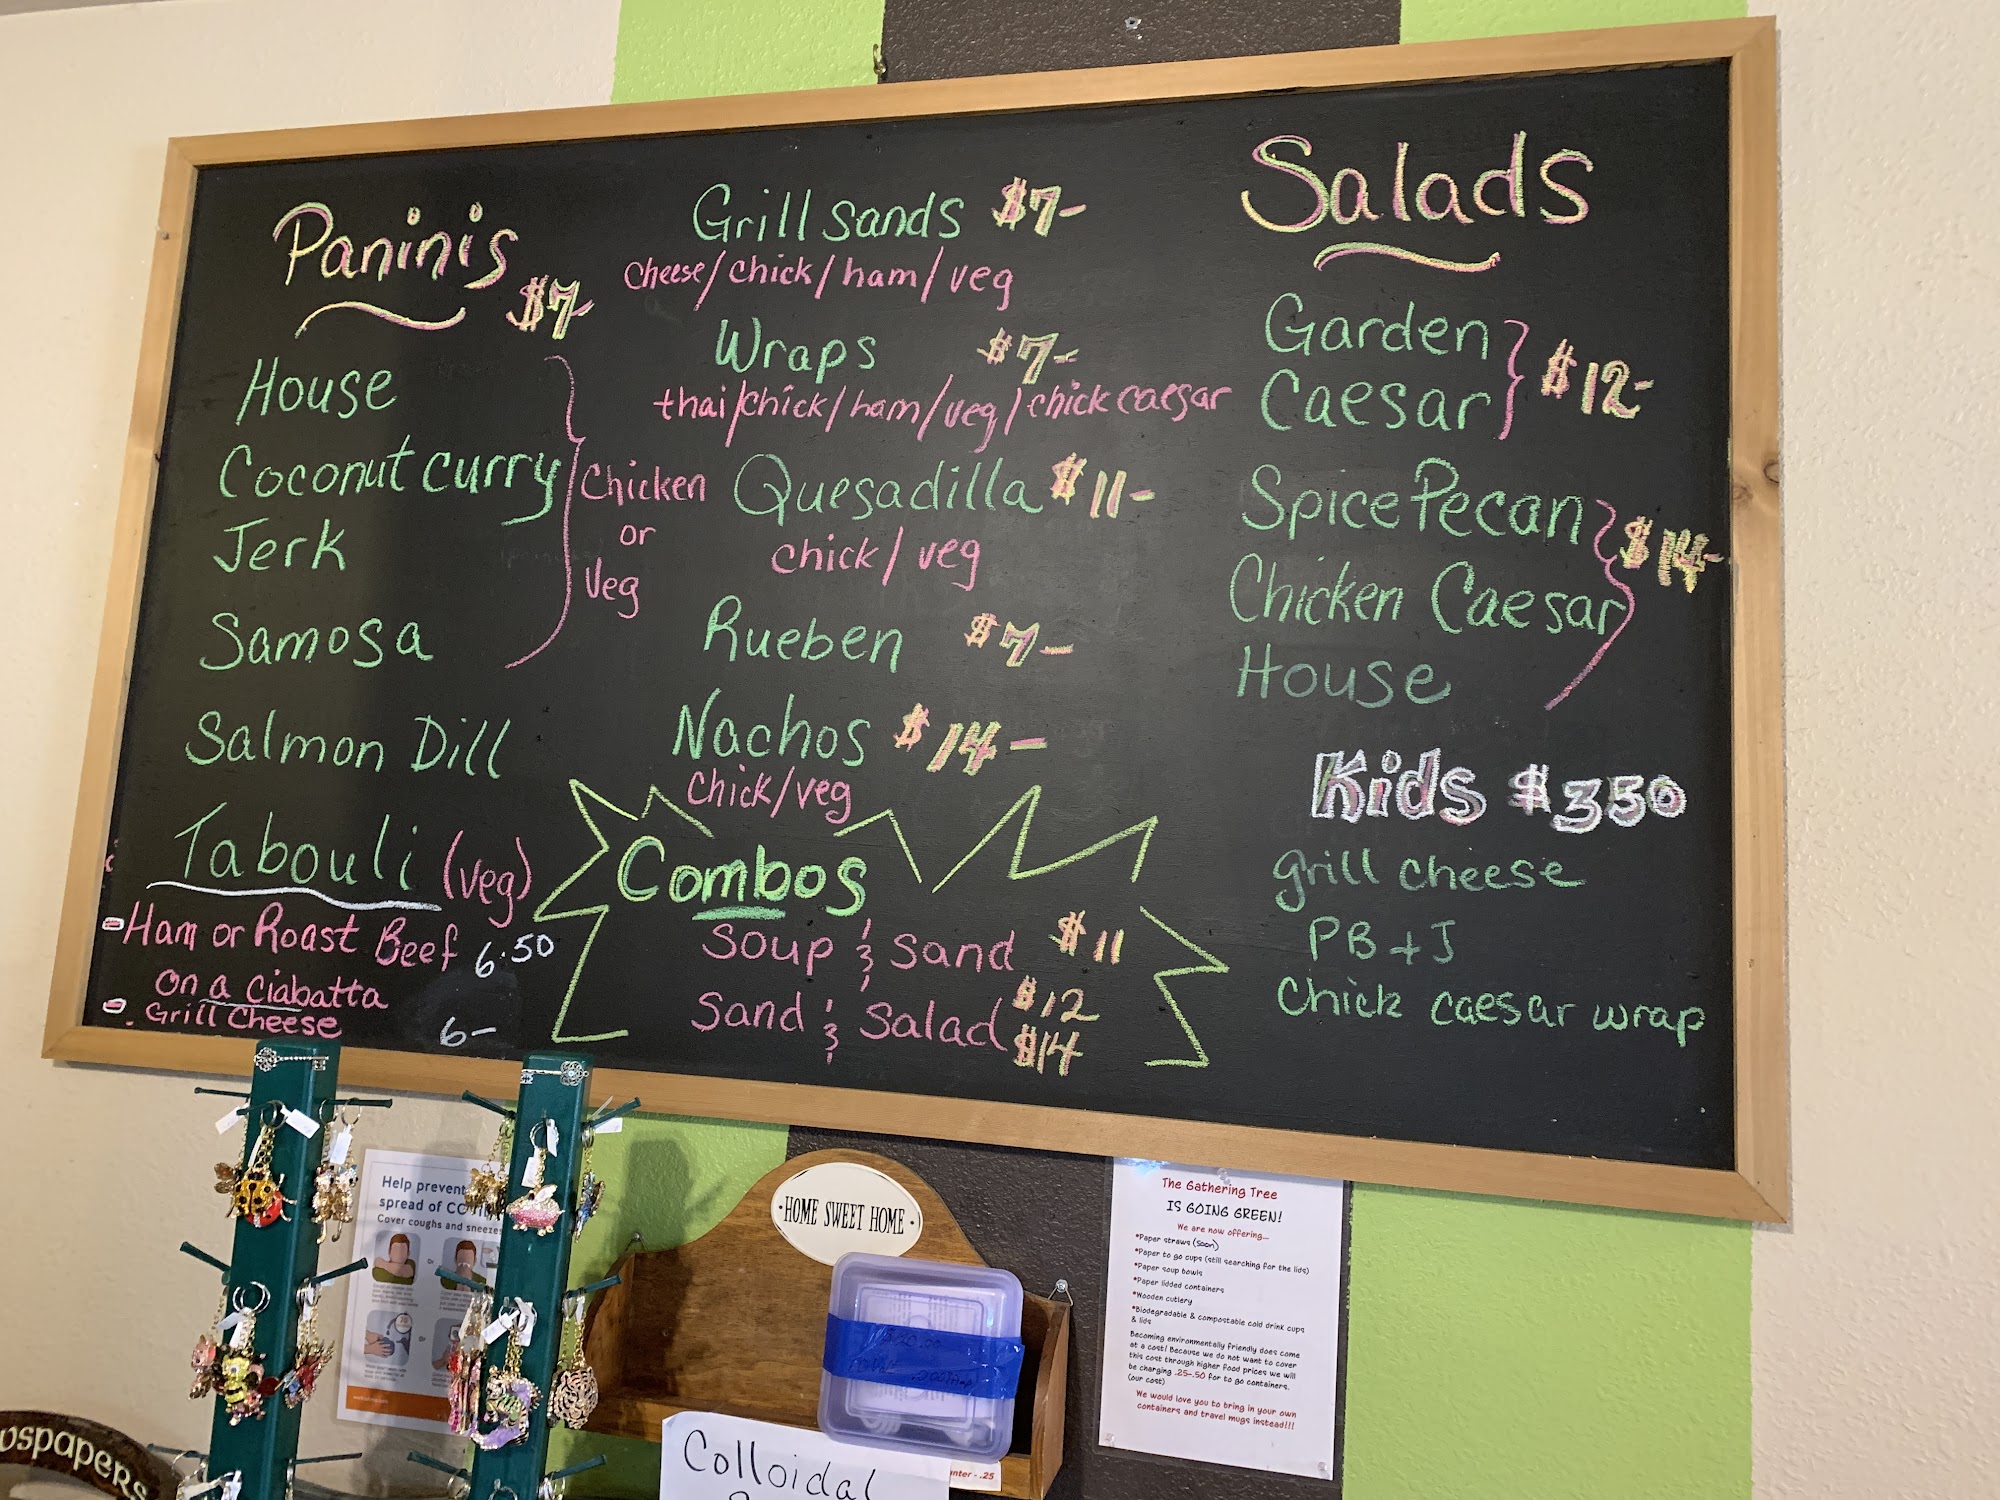 Paninis
$7-
House
Coconut curry
Jerk
Samosa
Chicken
or
Veg
Salmon Dill
Tabouli (veg)
Ham or Roast Beef 6.50
on a Ciabatta
Grill Cheese 6-
Grill sands $7-
cheese/chick/ham/veg
Wraps $7-
thai/chick/ham/veg/chick caesar
Quesadilla $11-
chick/veg
Rueben $7-
Nachos $14-
Chick/veg
Combos
Soup & Sand $11
Sand & Salad $12
$14
Salads
Garden
Caesar
$12-
Spice Pecan
Chicken Caesar
House
$14-
Kids $350
grill cheese
PB+J
Chick caesar wrap
Help prevent
spread of CO
Cover coughs and sneezes
HOME SWEET HOME
The Gathering Tree
IS GOING GREEN!
We are now offering...
*Paper straws (soon)
*Paper to go cups (still searching for the lids)
*Paper soup bowls
*Paper lidded containers
*Wooden cutlery
*Biodegradable & compostable cold drink cups
& lids
Becoming environmentally friendly does come
at a cost! Because we do not want to cover
this cost through higher food prices we will
be charging .25-.50 for to go containers.
(our cost)
We would love you to bring in your own
containers and travel mugs instead!!!
wspapers
Colloidal
nter - .25